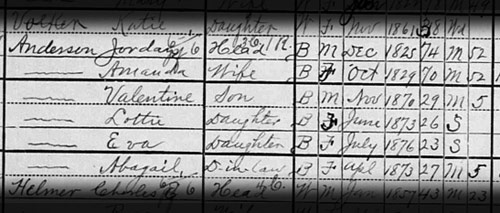 Katie Daughter W F Nov 1861 38 Wd
Anderson Jordan Head B M Dec 1825 74 M 52
— Amanda Wife B F Oct 1829 70 M 52
— Valentine Son B M Nov 1870 29 M 5
— Lottie Daughter B F June 1873 26 S
— Eva Daughter B F July 1876 23 S
— Abagail D-in-law B F Apl 1873 27 M 5
Helmer Charles Head W M June 1857 43 M 23